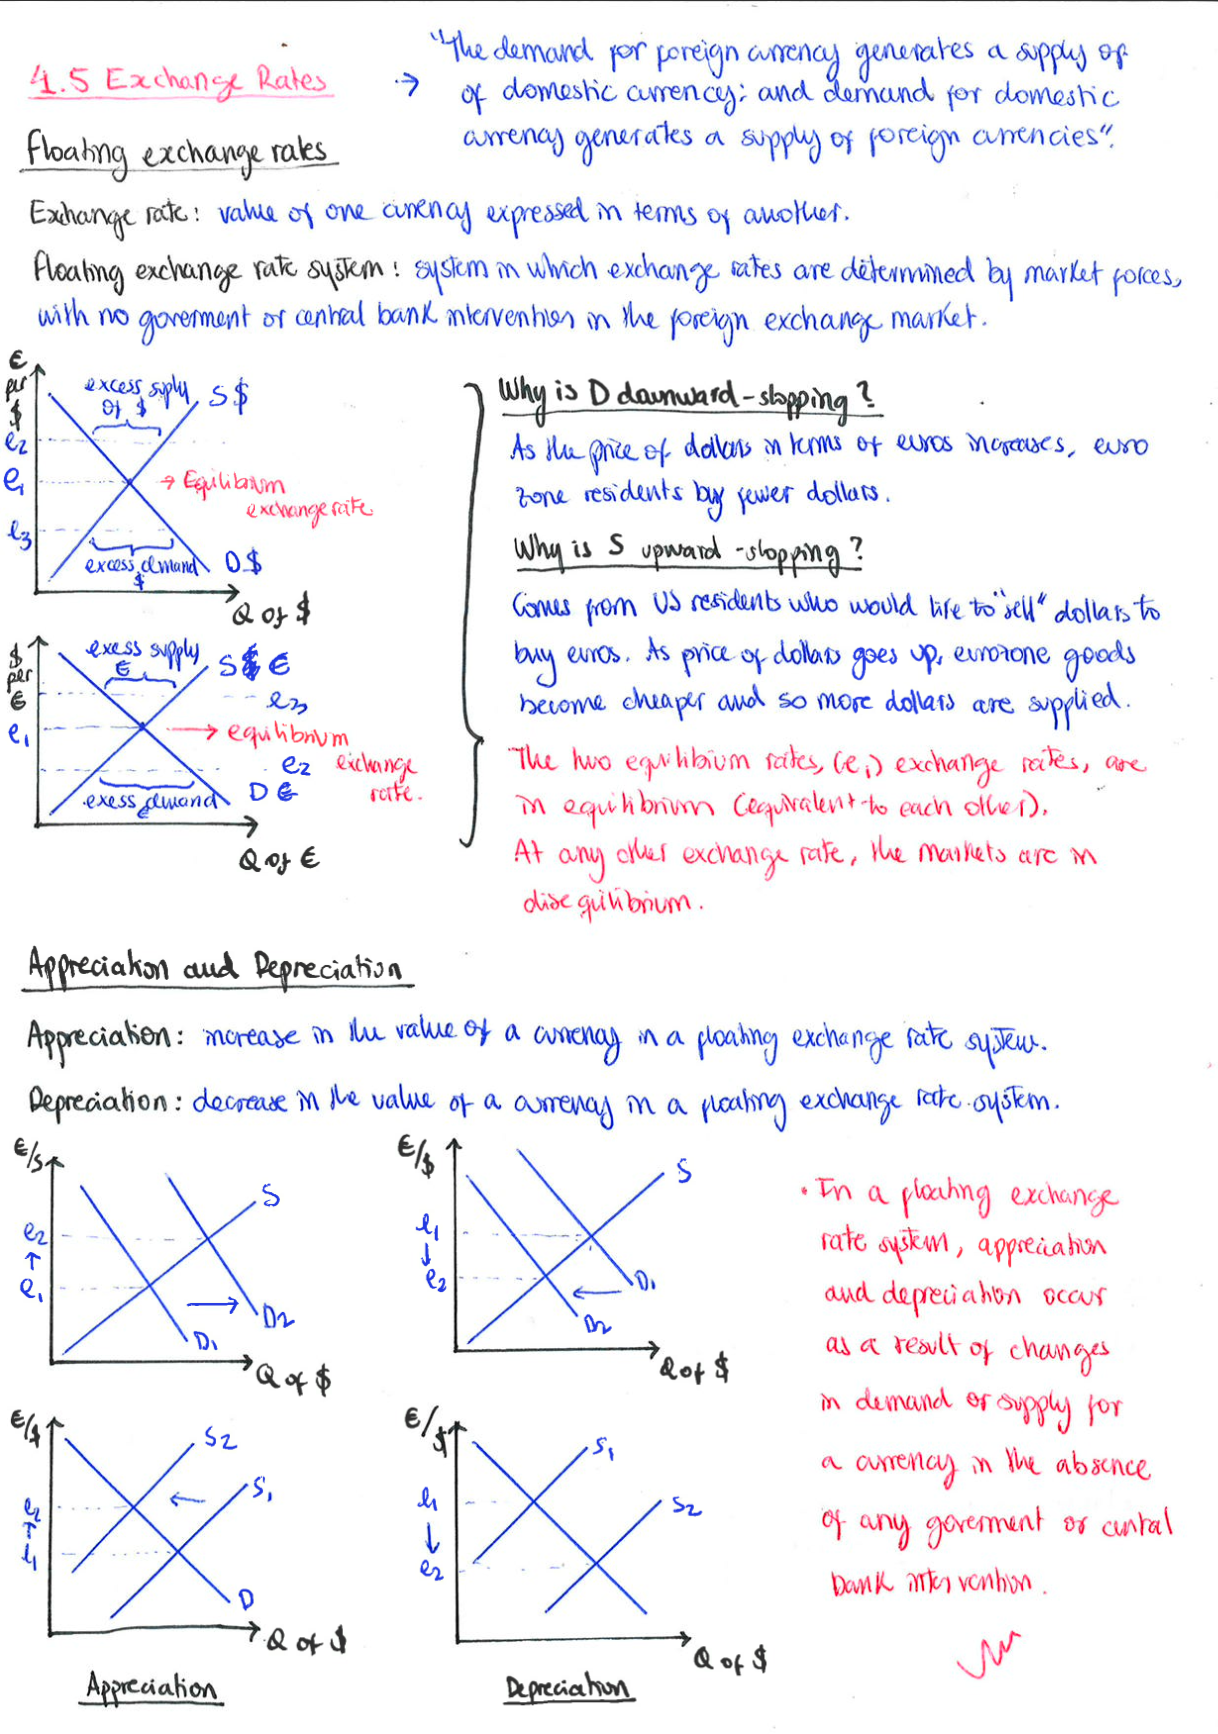 4.5 Exchange Rates
→ "The demand for foreign currency generates a supply of
of domestic currency; and demand for domestic
currency generates a supply of foreign currencies".
Floating exchange rates
Exchange rate: value of one currency expressed in terms of another.
Floating exchange rate system: system in which exchange rates are determined by market forces,
with no goverment or central bank intervention in the foreign exchange market.
€ per $
excess suply of $
S $
e2
e1
→ Equilibrium exchange rate
e3
excess demand $
D $
Q of $
Why is D downward-slopping?
As the price of dollars in terms of euros increases, euro
zone residents buy fewer dollars.
Why is S upward-slopping?
Comes from US residents who would like to "sell" dollars to
buy euros. As price of dollars goes up, eurozone goods
become cheaper and so more dollars are supplied.
The two equilibrium rates, (e1) exchange rates, are
in equilibrium (equivalent to each other).
At any other exchange rate, the markets are in
disequilibrium.
$ per €
exess supply €
S €
e3
e1
→ equilibrium exchange rate.
e2
exess demand €
D €
Q of €
Appreciation and Depreciation
Appreciation: increase in the value of a currency in a floating exchange rate system.
Depreciation: decrease in the value of a currency in a floating exchange rate system.
€/$
S
e2
↑
e1
D1
D2
Q of $
€/$
S
e1
↓
e2
D1
D2
Q of $
€/$
S2
S1
e2
↑
e1
D
Q of $
Appreciation
€/$
S1
S2
e1
↓
e2
Q of $
Depreciation
• In a floating exchange
rate system, appreciation
and depreciation occur
as a result of changes
in demand or supply for
a currency in the absence
of any goverment or central
bank intervention.